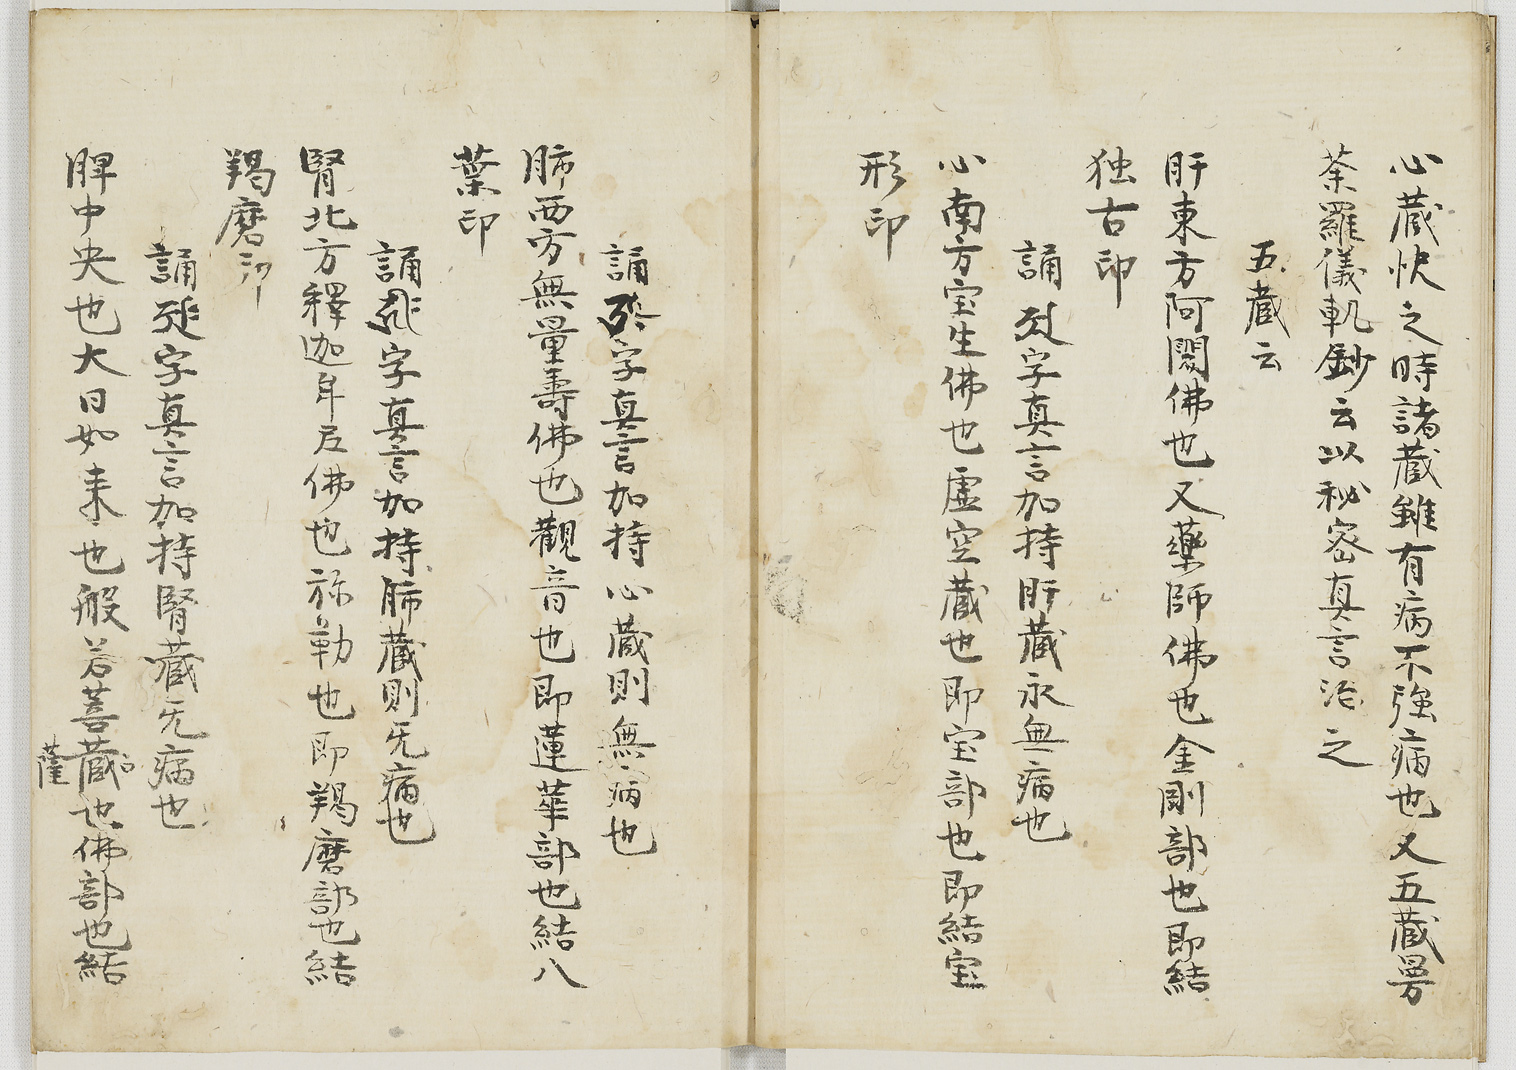 心蔵快之時諸蔵雖有病不強病也又五蔵曼
荼羅儀軌鈔云以秘密真言治之
五蔵云
肝東方阿閦佛也又藥師佛也金剛部也即結
独古印
誦字真言加持肝蔵永無病也
心南方宝生佛也虚空蔵也即宝部也即結宝
形印
誦字真言加持心蔵則無病也
肺西方無量壽佛也觀音也即蓮華部也結八
葉印
誦字真言加持肺蔵則旡病也
腎北方釋迦牟尼佛也弥勒也即羯磨部也結
羯磨印
誦字真言加持腎蔵旡病也
脾中央也大日如来也般若菩蔵也佛部也結
薩